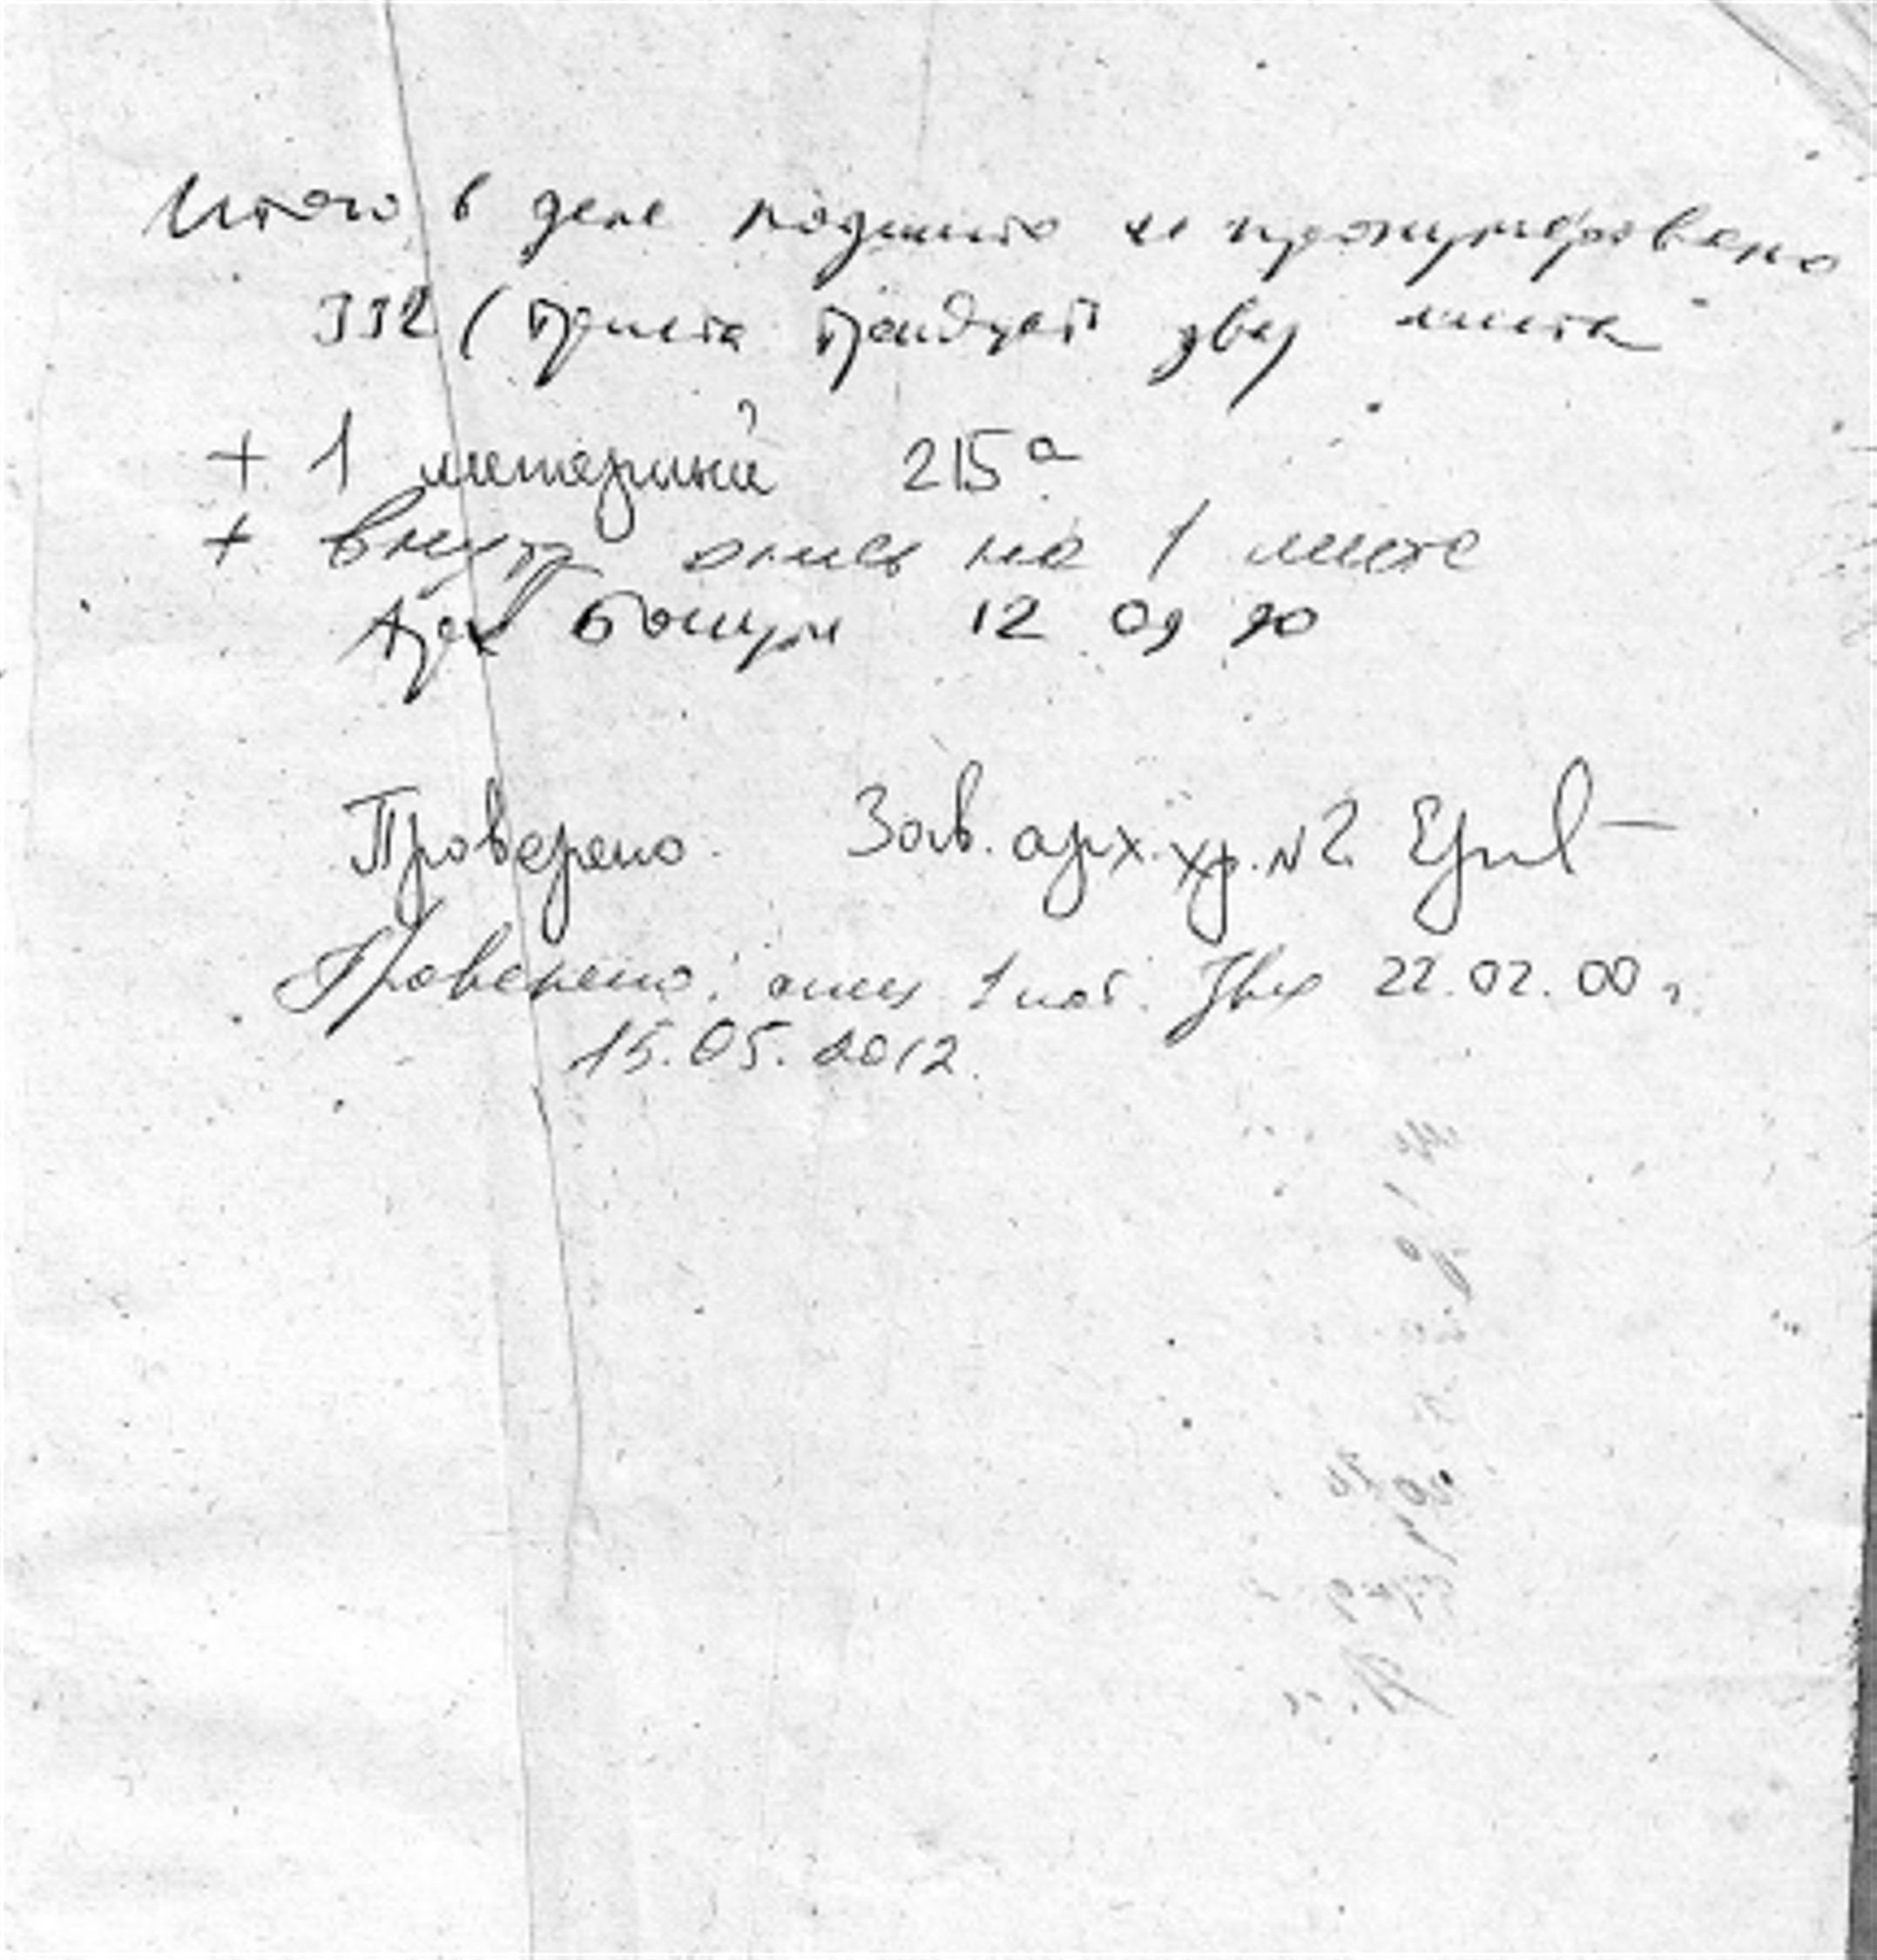 Итого в деле подшито и пронумеровано
332 (триста тридцать два листа
+ 1 литерный 215а
+ внутр опись на 1 листе
Арх 12 09 90
Проверено. Зав. арх. хр. №2
Проверено: 22.02.00 г.
15.05.2012.